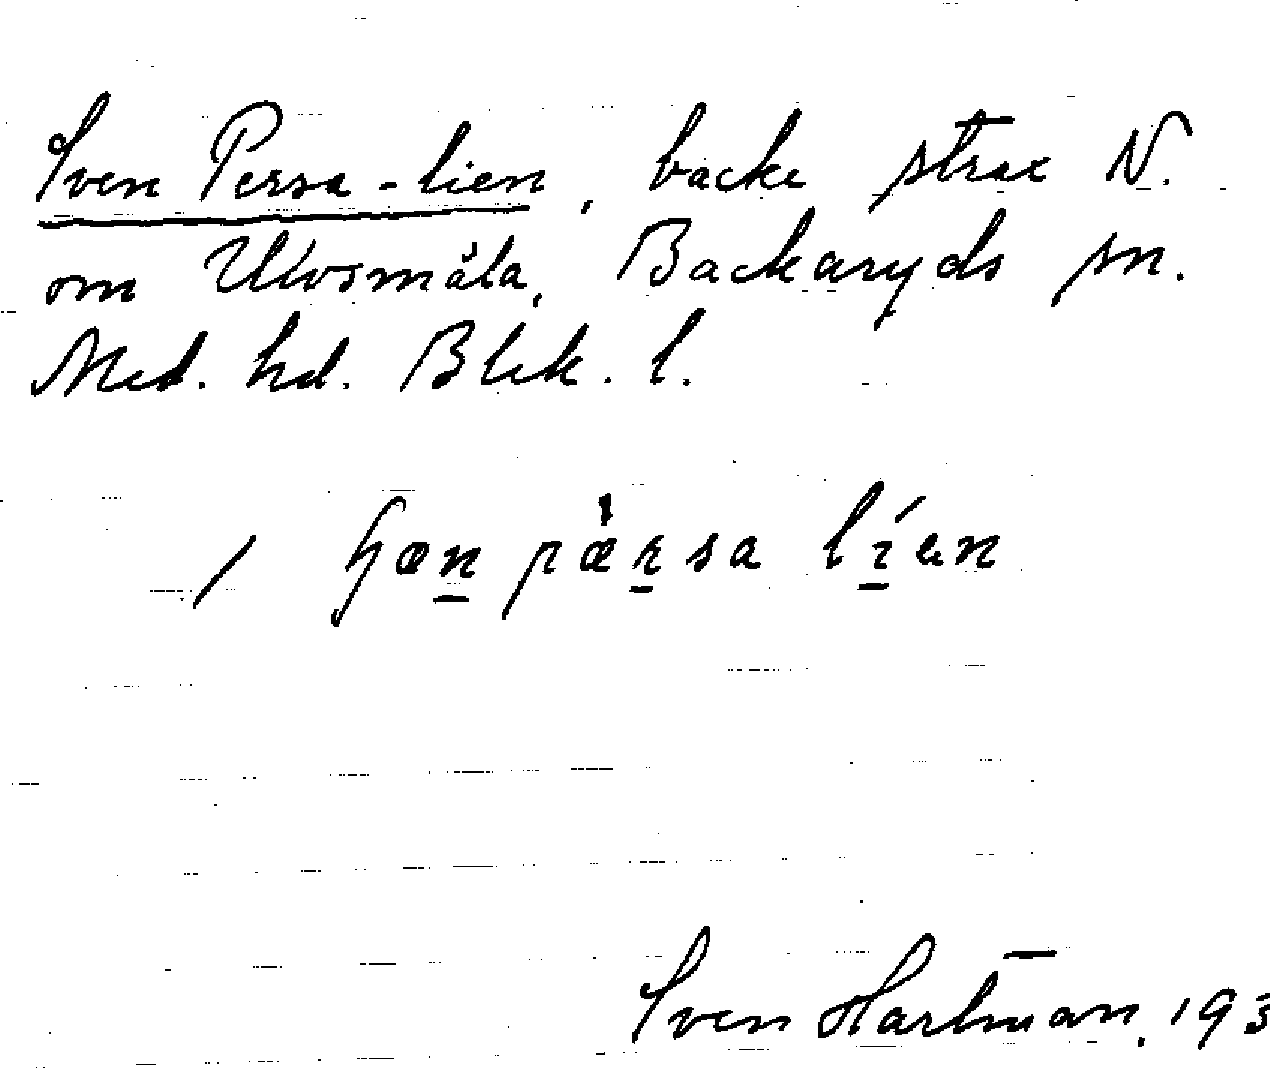 Sven Persa-lien, backe strax N.
om Ulvsmåla, Backaryds sn.
Med. hd. Blek. l.
Sven Hartman, 193